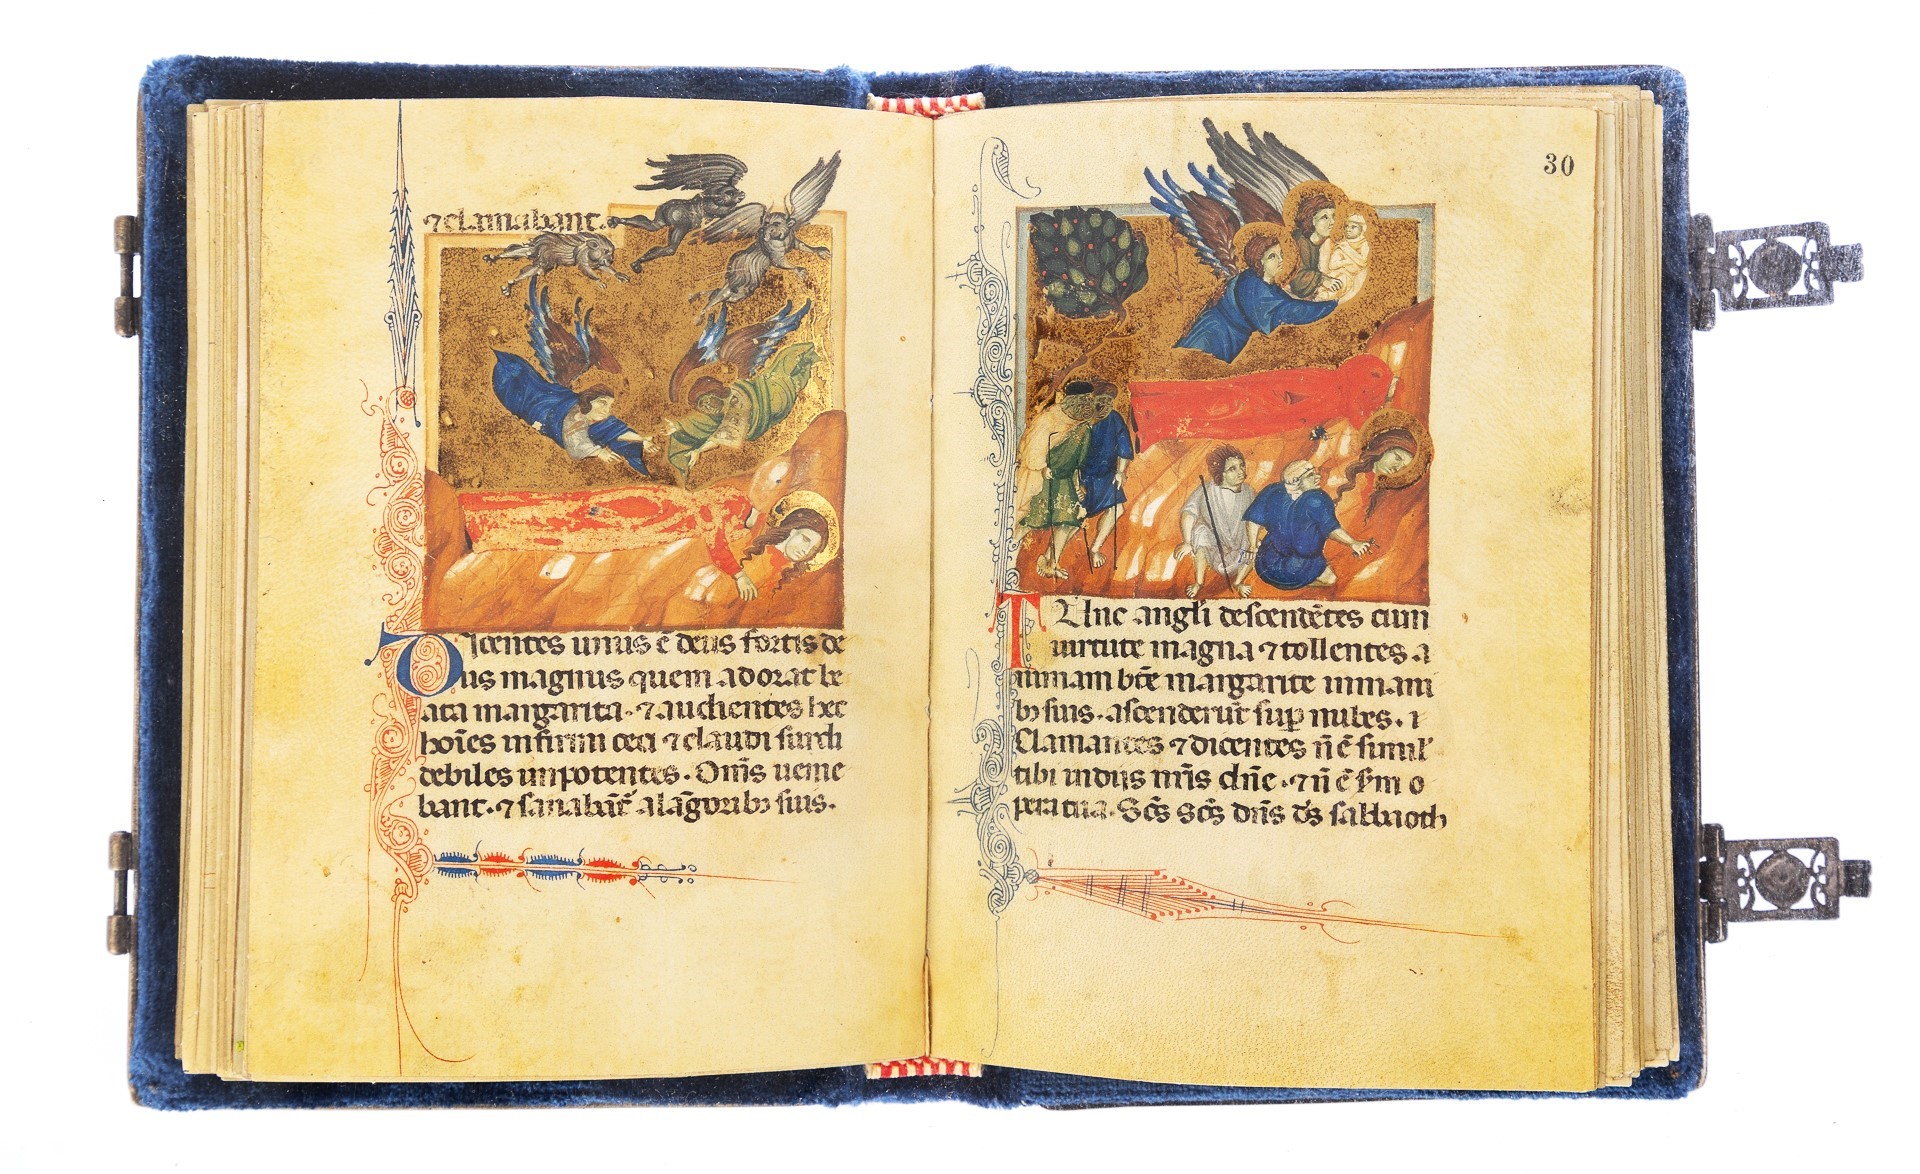 ⁊clamabant.
Dicentes unus ē deus fortis de
us magnus quem adorat be
ata margarita. ⁊ audientes hec
hoīes infirmi ceci ⁊ claudi surdi
debiles inpotentes. Omīs ueni
bant. ⁊ sanabāt᷑ alāgorib᷒ suis.
30
TUnc angli descendētes cum
uirtute magna ⁊ tollentes a
nimam btē margarite
suis. ascenderūt sup nubes. ⁊
Clamantes ⁊ dicentes nē simil
tibi in diis dn̄e. ⁊ n̄ ē sm̄ o
pera tua. Sc̄s Sc̄s dn̄s ds̄ sabbaoth